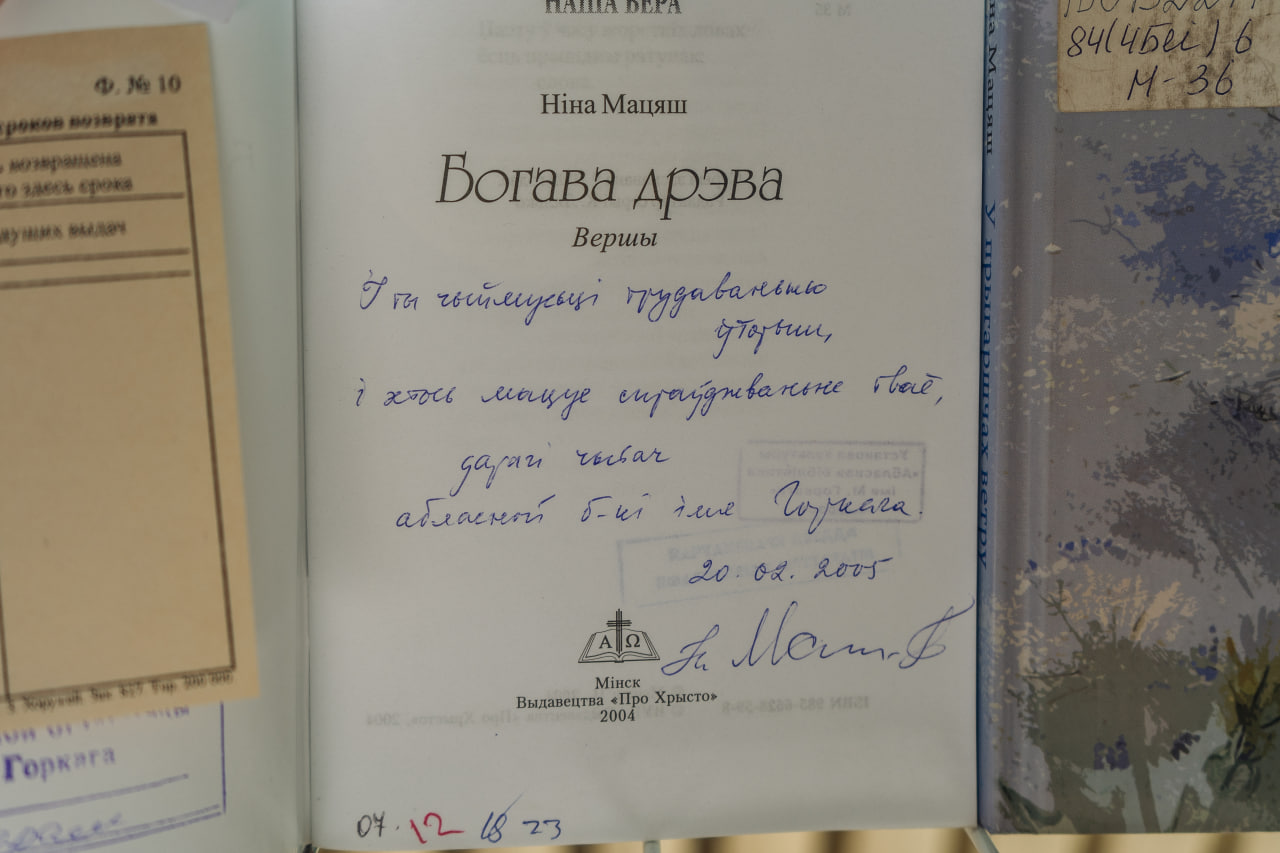 Ф. № 10
сроков возврата
возвращена
здесь срока
выдач
Горкага
НАША ВЕРА
Ніна Мацяш
Богава дрэва
Вершы
І ты чыймусьці трудаваньню
ўторыш,
і хтось мацуе спраўджваньне тваё,
дарагі чытач
абласной б-кі імя Горкага.
20.02.2005
Н. Мацяш
А Ω
Мінск
Выдавецтва «Про Хрысто»
2004
07. 12 18 23
Мацяш У прыгаршчах ветру
84(4Беі)6
М-36